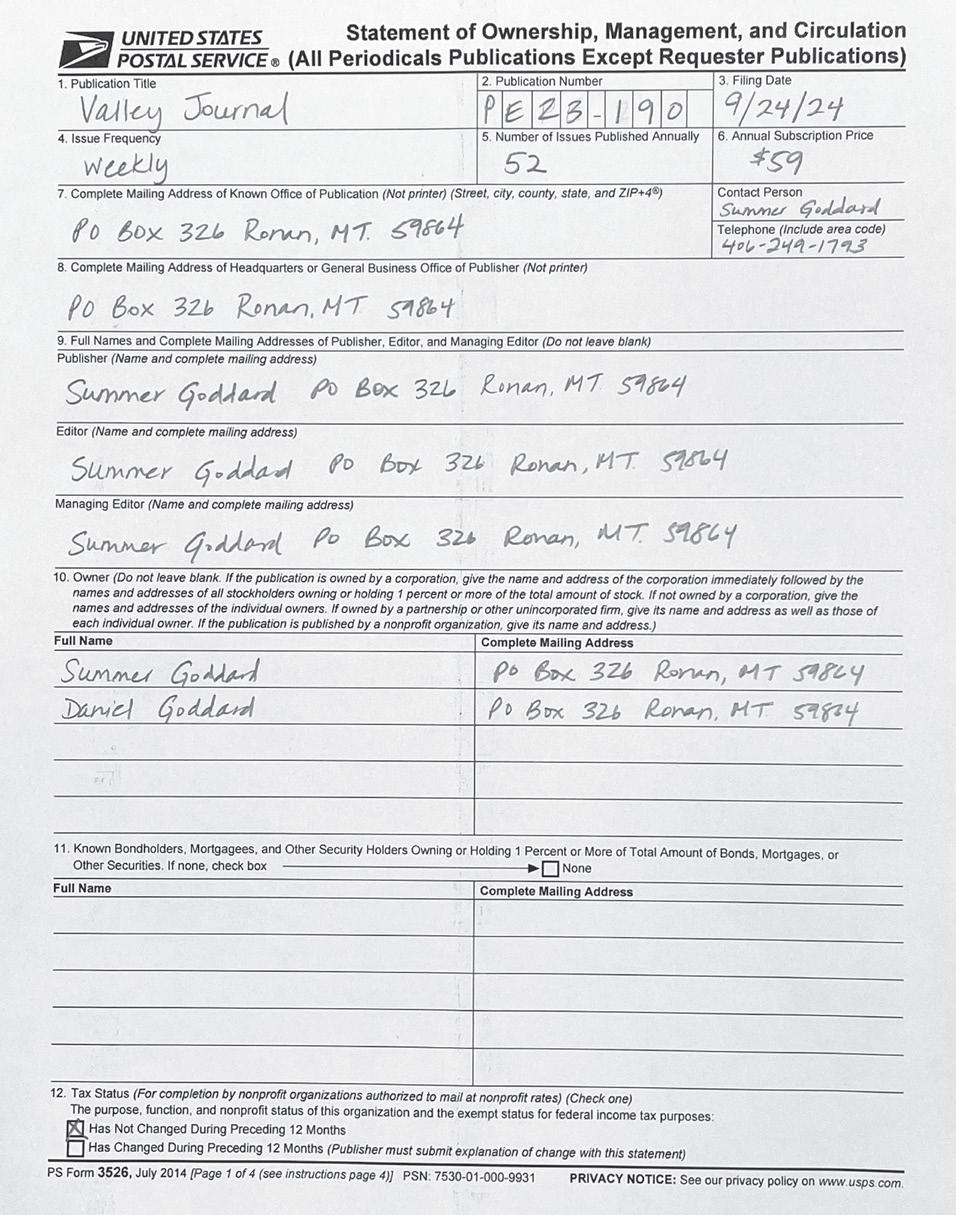 UNITED STATES POSTAL SERVICE®
Statement of Ownership, Management, and Circulation
(All Periodicals Publications Except Requester Publications)
1. Publication Title
Valley Journal
2. Publication Number
PE23-190
3. Filing Date
9/24/24
4. Issue Frequency
Weekly
5. Number of Issues Published Annually
52
6. Annual Subscription Price
$59
7. Complete Mailing Address of Known Office of Publication (Not printer) (Street, city, county, state, and ZIP+4®)
PO Box 326 Ronan, MT. 59864
Contact Person
Summer Goddard
Telephone (Include area code)
406-249-1793
8. Complete Mailing Address of Headquarters or General Business Office of Publisher (Not printer)
PO Box 326 Ronan, MT. 59864
9. Full Names and Complete Mailing Addresses of Publisher, Editor, and Managing Editor (Do not leave blank)
Publisher (Name and complete mailing address)
Summer Goddard PO Box 326 Ronan, MT. 59864
Editor (Name and complete mailing address)
Summer Goddard PO Box 326 Ronan, MT. 59864
Managing Editor (Name and complete mailing address)
Summer Goddard PO Box 326 Ronan, MT. 59864
10. Owner (Do not leave blank. If the publication is owned by a corporation, give the name and address of the corporation immediately followed by the
names and addresses of all stockholders owning or holding 1 percent or more of the total amount of stock. If not owned by a corporation, give the
names and addresses of the individual owners. If owned by a partnership or other unincorporated firm, give its name and address as well as those of
each individual owner. If the publication is published by a nonprofit organization, give its name and address.)
Full Name Complete Mailing Address
Summer Goddard PO Box 326 Ronan, MT 59864
Daniel Goddard PO Box 326 Ronan, MT. 59864
11. Known Bondholders, Mortgagees, and Other Security Holders Owning or Holding 1 Percent or More of Total Amount of Bonds, Mortgages, or
Other Securities. If none, check box None
Full Name Complete Mailing Address
12. Tax Status (For completion by nonprofit organizations authorized to mail at nonprofit rates) (Check one)
The purpose, function, and nonprofit status of this organization and the exempt status for federal income tax purposes:
Has Not Changed During Preceding 12 Months
Has Changed During Preceding 12 Months (Publisher must submit explanation of change with this statement)
PS Form 3526, July 2014 [Page 1 of 4 (see instructions page 4)] PSN: 7530-01-000-9931 PRIVACY NOTICE: See our privacy policy on www.usps.com.